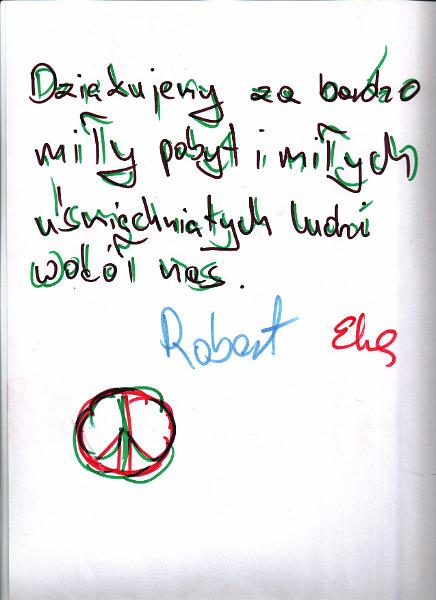 Dziękujemy za bardzo
miły pobyt i miłych
uśmiechniętych ludzi
wokół nas.
Robert Ela